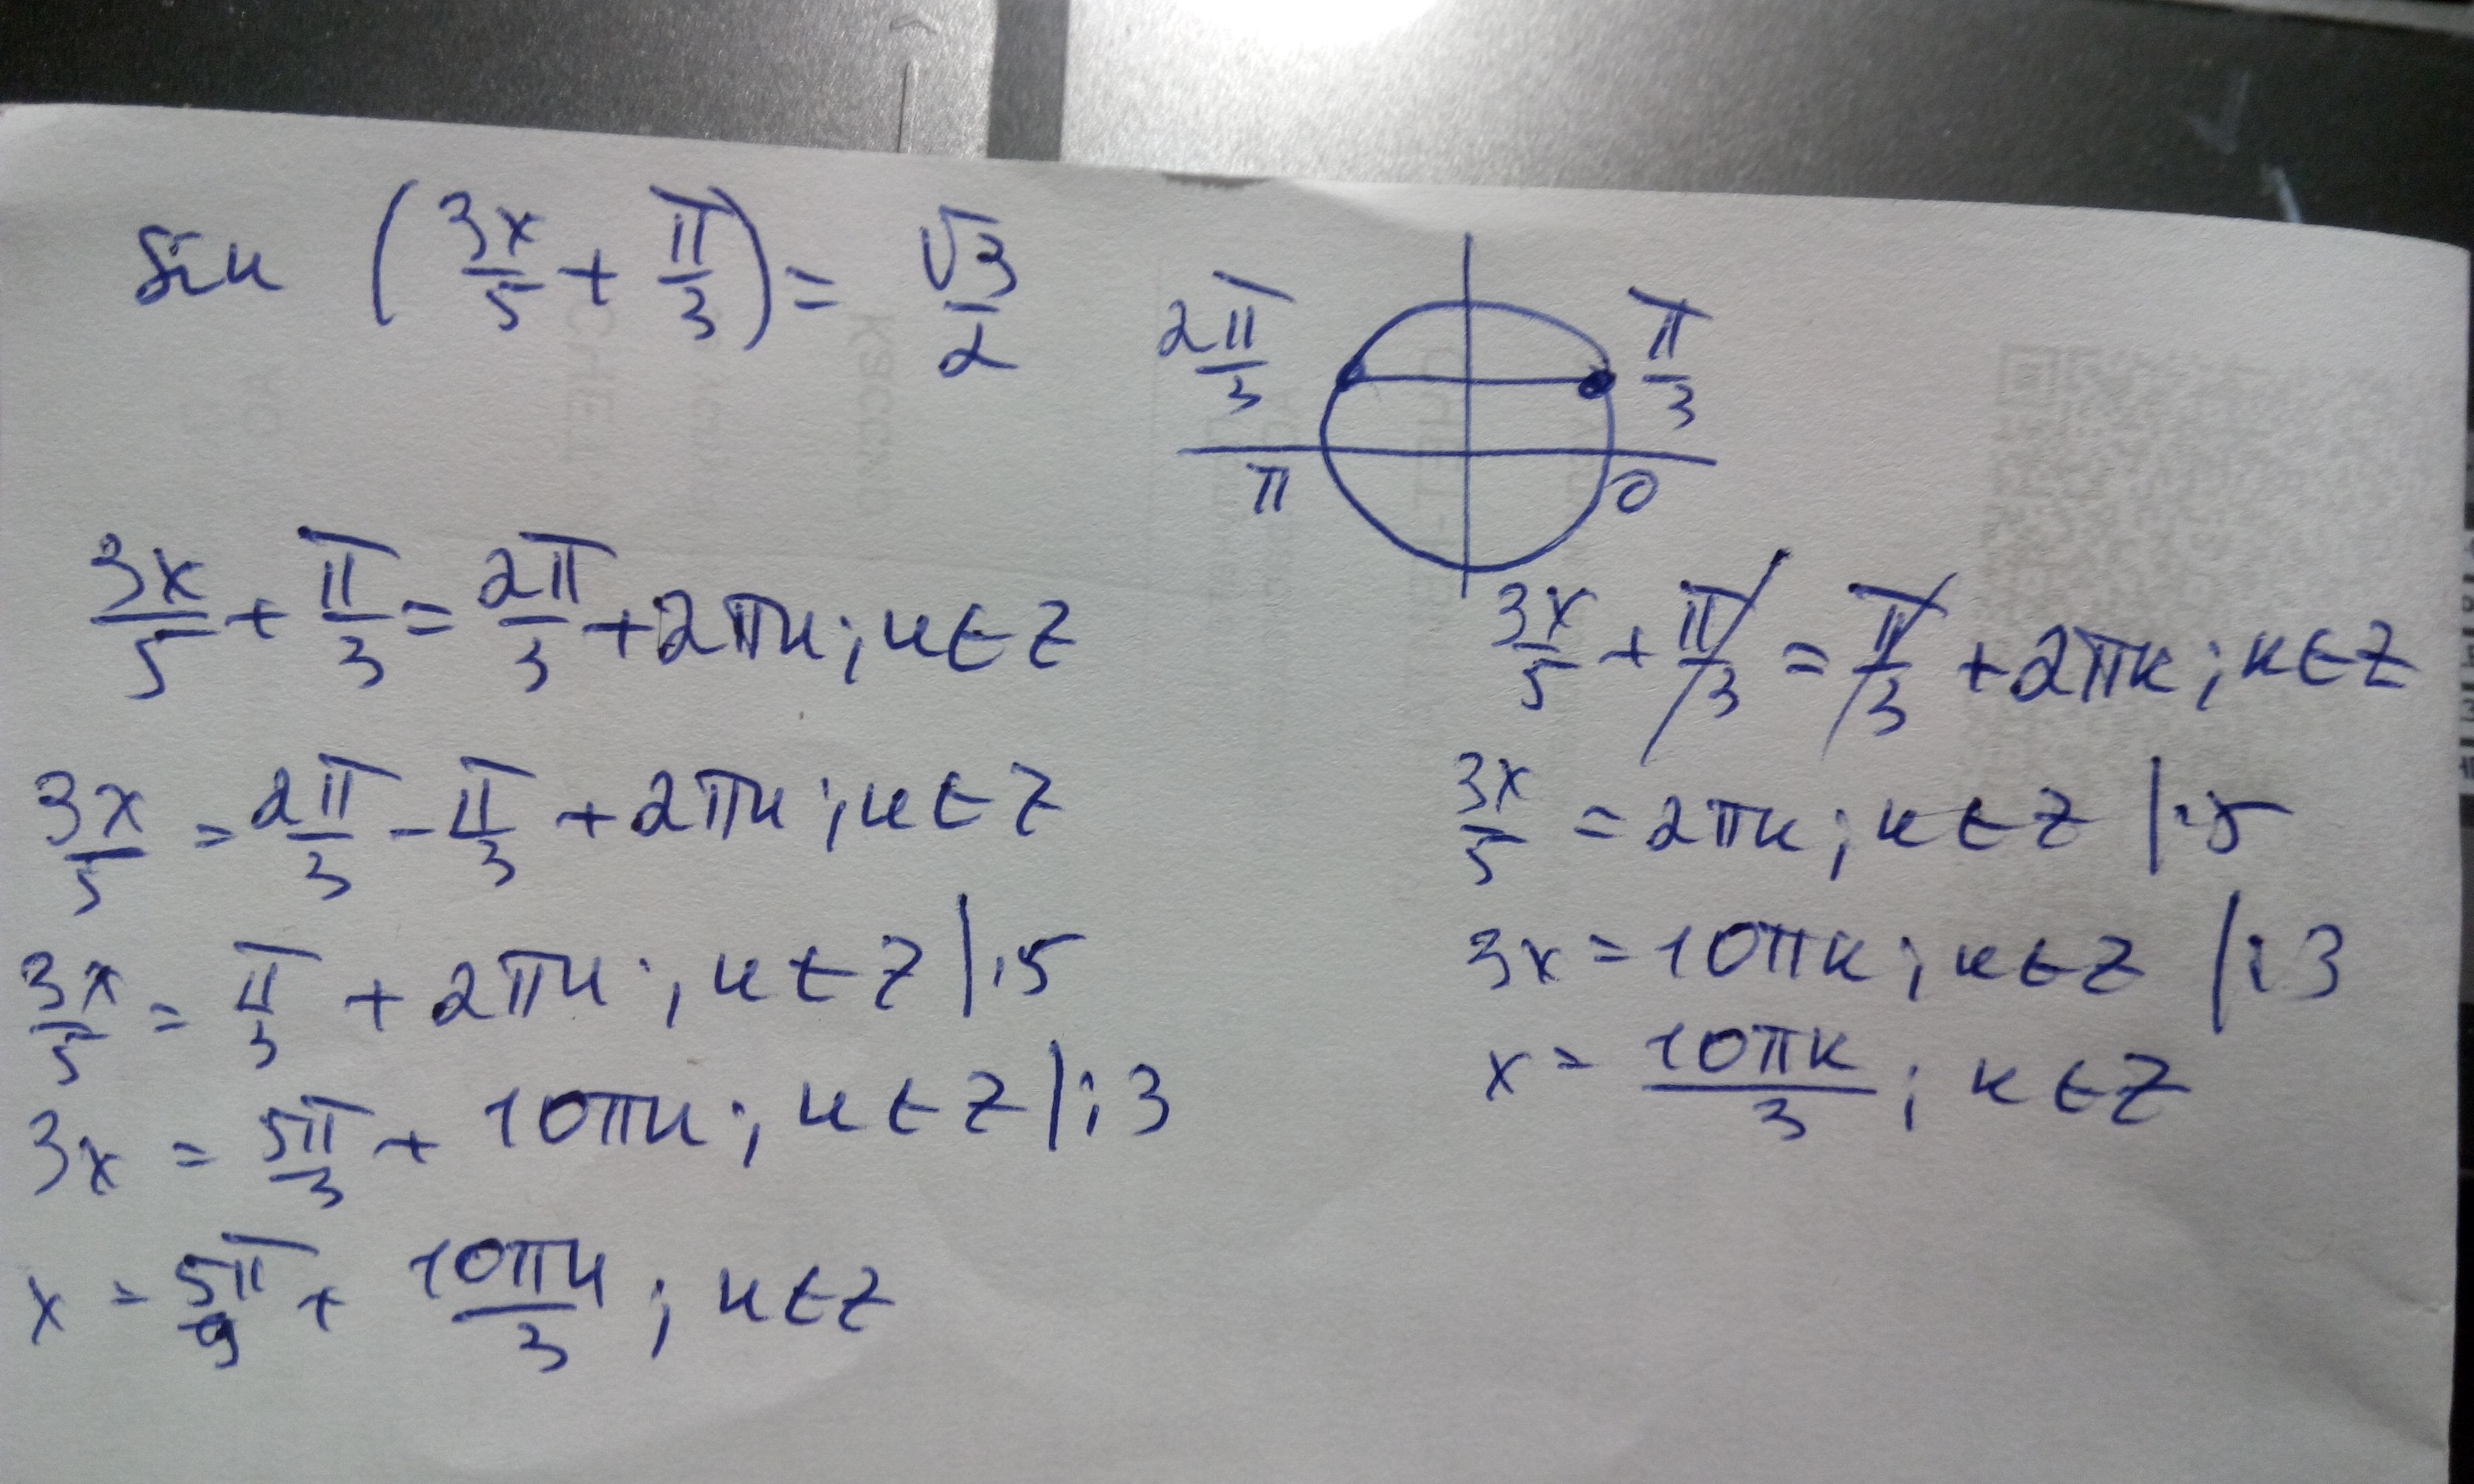 sin (3x/5 + π/3) = √3/2
2π/3
π/3
π
0
3x/5 + π/3 = 2π/3 + 2πк; к ∈ Z
3x/5 = 2π/3 - π/3 + 2πк; к ∈ Z
3x/5 = π/3 + 2πк; к ∈ Z |·5
3x = 5π/3 + 10πк; к ∈ Z |:3
x = 5π/9 + 10πк/3; к ∈ Z
3x/5 + π/3 = π/3 + 2πк; к ∈ Z
3x/5 = 2πк; к ∈ Z |·5
3x = 10πк; к ∈ Z |:3
x = 10πк/3; к ∈ Z